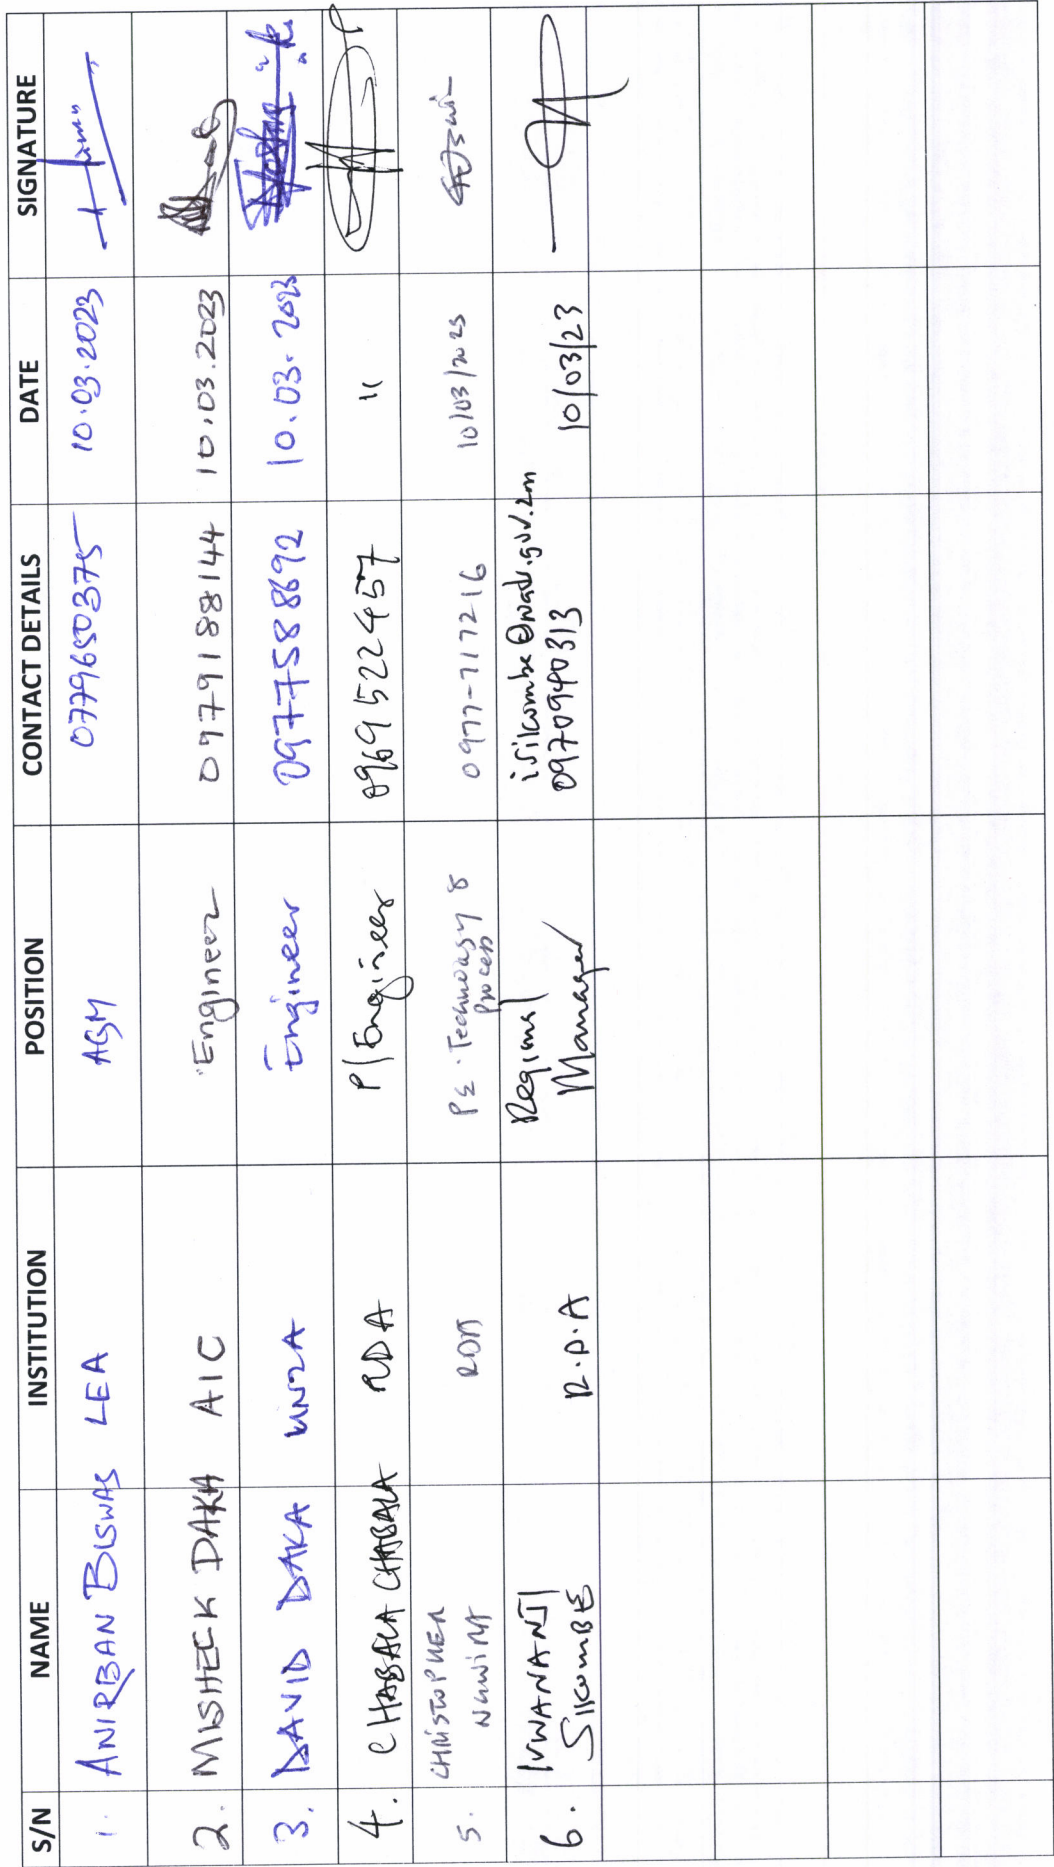 S/N NAME INSTITUTION POSITION CONTACT DETAILS DATE SIGNATURE
1. ANIRBAN BISWAS LEA AGM 0779650375 10.03.2023
2. MISHECK DAKA AIC Engineer 0979188144 10.03.2023
3. DAVID DAKA UNZA Engineer 0977588692 10.03.2023
4. CHABALA CHABALA RDA P/Engineer 0969522457 "
5. CHRISTOPHER
RDA PE. Technology &
Process 0977-717216 10/03/2023
6. IVWANANJI
SIKOMBE R.D.A Regional
Manager
0970940313 10/03/23